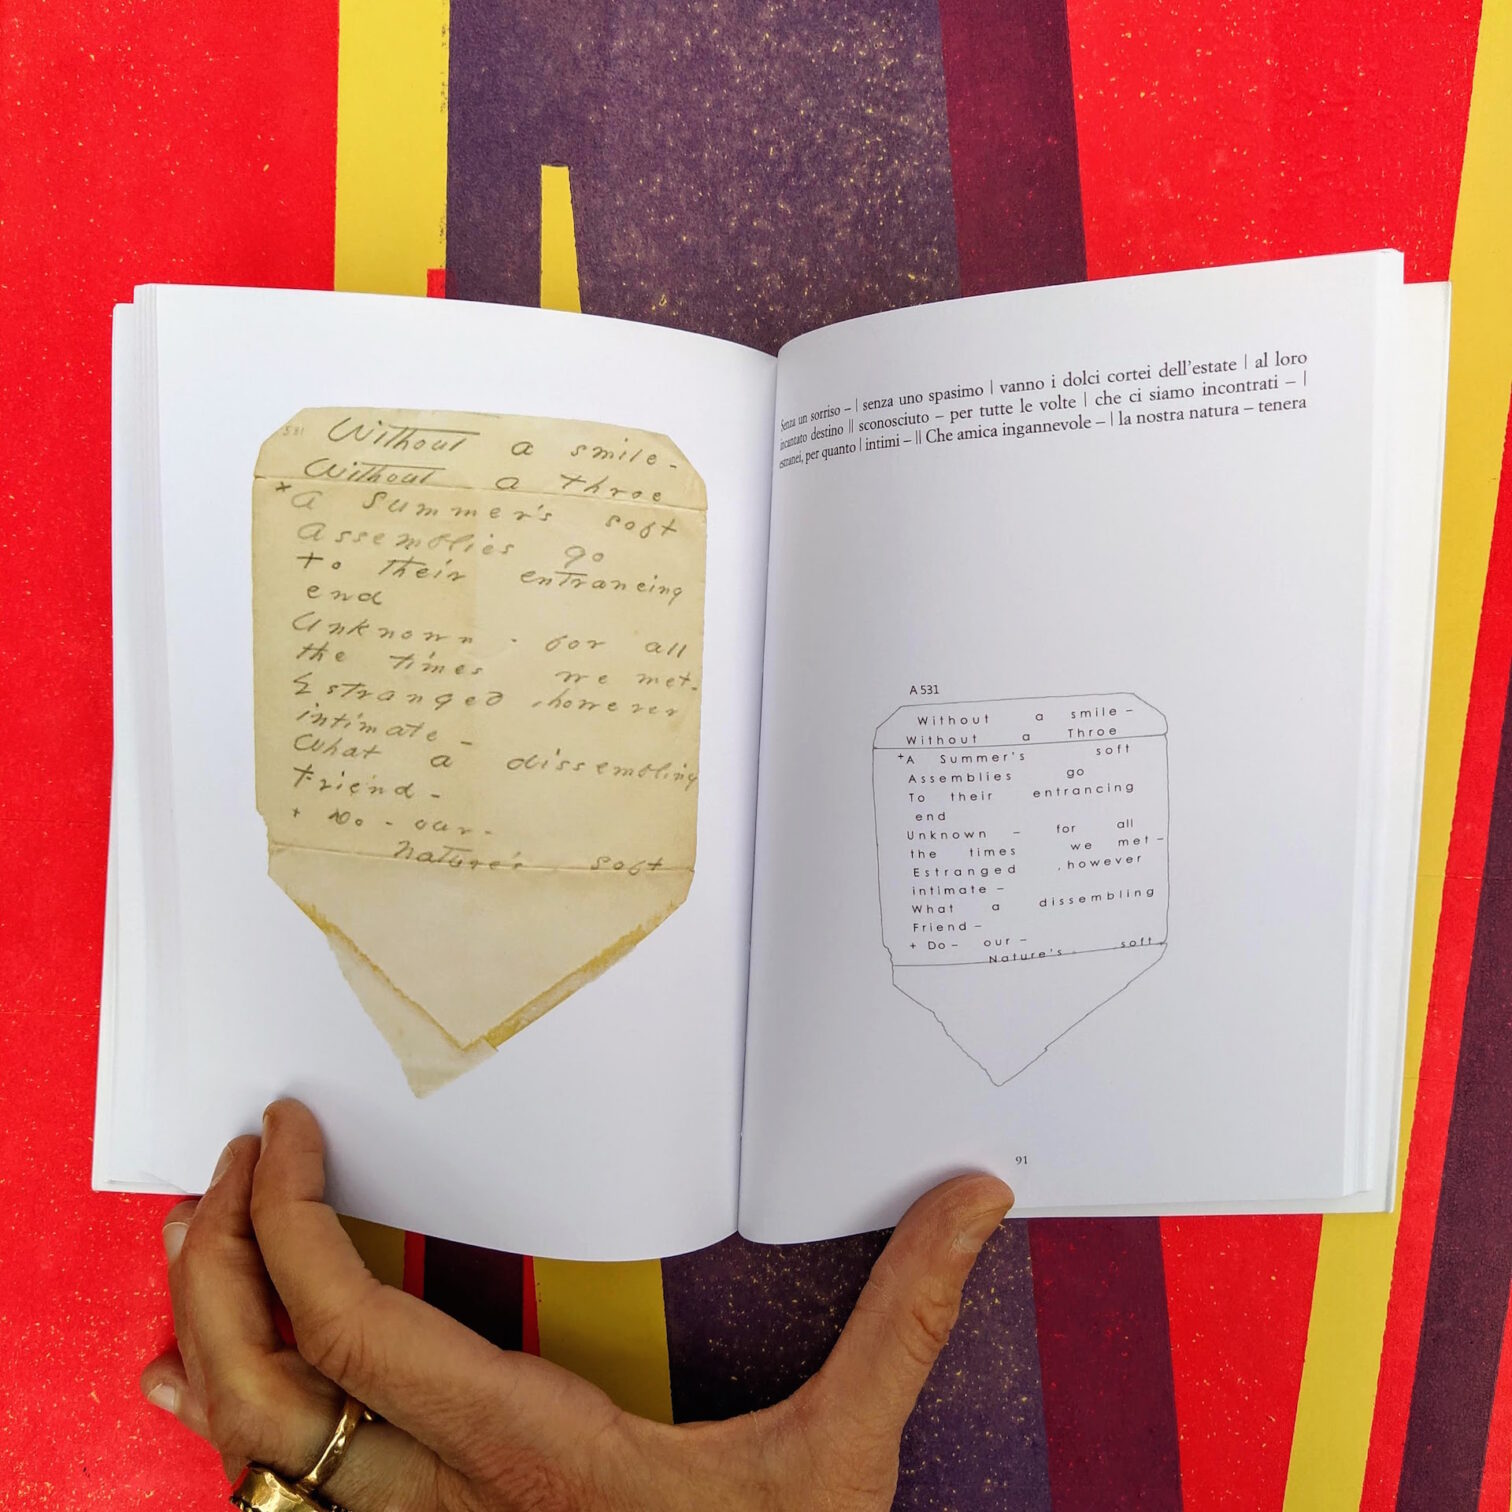 531
Without a smile -
Without a Throe
+ A Summer's soft
Assemblies go
To their entrancing
end
Unknown - for all
the times we met -
Estranged , however
intimate -
What a dissembling
Friend -
+ Do - our -
Nature's soft
Senza un sorriso – | senza uno spasimo | vanno i dolci cortei dell'estate | al loro
incantato destino || sconosciuto – per tutte le volte | che ci siamo incontrati – |
estranei, per quanto | intimi – || Che amica ingannevole – | la nostra natura – tenera
A 531
Without a smile –
Without a Throe
+A Summer's soft
Assemblies go
To their entrancing
end
Unknown – for all
the times we met –
Estranged , however
intimate –
What a dissembling
Friend –
+ Do – our –
Nature's soft
91